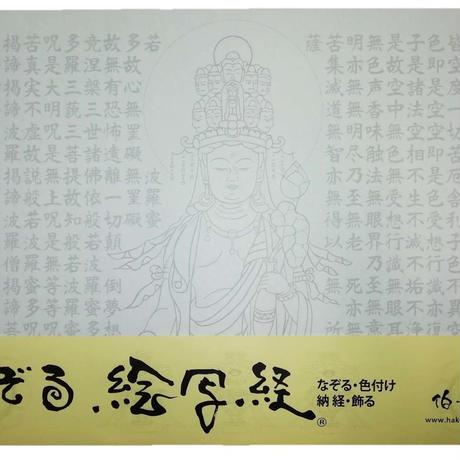 皆空度一切苦厄舎利子色不異空
色即是空空即是色受想行識亦復
子是諸法空相不生不滅不垢不浄
是故空中無色無受想行識無眼耳
無色声香味触法無眼界乃至無意
明亦無無明尽乃至無老死亦無
苦集滅道無智亦無得以無所
薩
若波羅蜜
多故心無罣礙無罣礙
故無有恐怖遠離一切顛倒夢想
竟涅槃三世諸佛依般若波羅
多羅三藐三菩提故知般若波羅
呪是大明呪是無上呪是無等等
苦真実不虚故説般若波羅蜜多
揭諦揭諦波羅揭諦波羅僧揭諦
ぞる、絵写経®
なぞる・色付け
納経・飾る
伯
www.hak